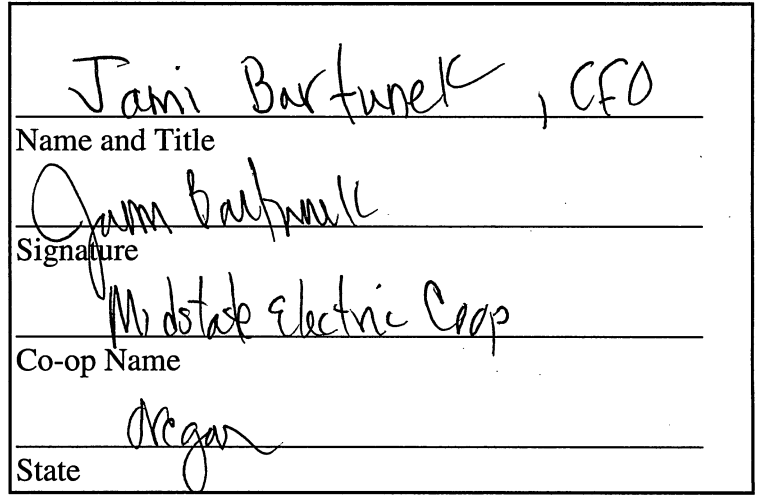 Jami Bartunek, CFO
Name and Title
Jami Bartunek
Signature
Midstate Electric Coop
Co-op Name
Oregon
State